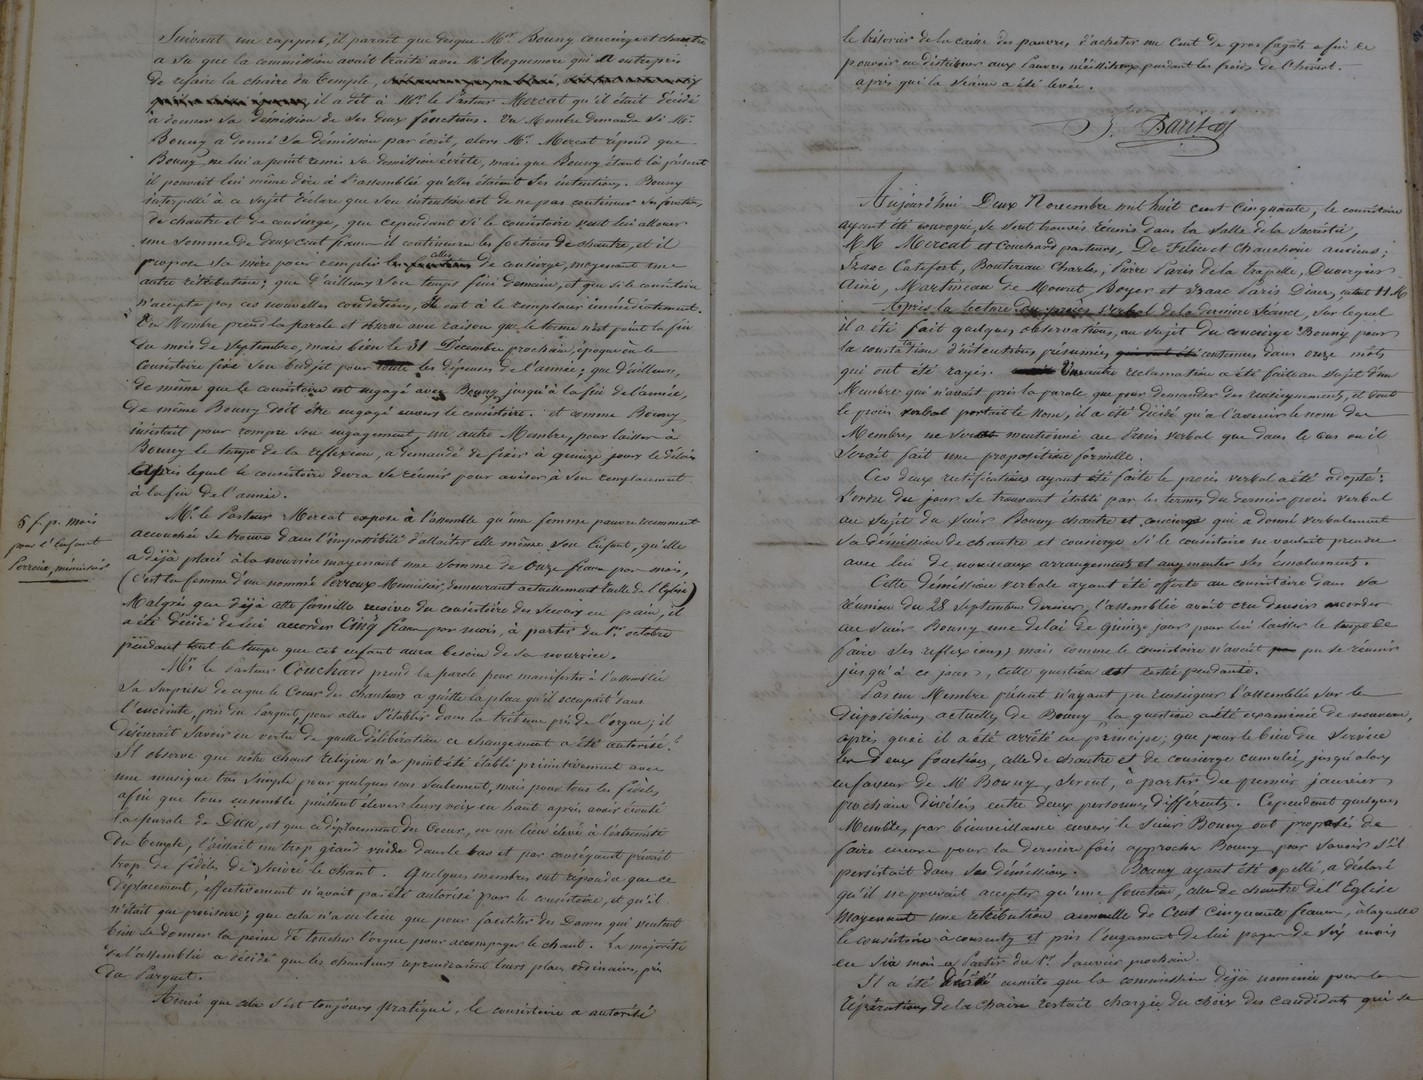 Suivant un rapport, il parait que depuis Mr. Bouny concierge et chantre
a su que la commission avait traité avec Mr Roquemore qui a entrepris
de refaire la chaire du Temple,
il a dit à Mr. le Pasteur Mercat qu'il était décidé
à donner sa demission de ses deux fonctions. Un Membre demande si Mr.
Bouny a donné sa démission par écrit, alors Mr. Mercat répond que
Bouny ne lui a point remis sa demission écrite, mais que Bouny étant là présent
il pouvait lui même dire à l'assemblée qu'elles étaient ses intentions. Bouny
interpellé à ce sujet déclare que son intention est de ne pas continuer ses fonctions
de chantre et de concierge, que cependant si le consistoire veut lui allouer
une somme de deux cent francs il continuera les fonctions de chantre, et il
propose sa mère pour remplir celles de concierge, moyenant une
autre rétribution; que d'ailleurs son temps fini demain, et que si le consistoire
n'accepte pas ces nouvelles conditions, il ont à le remplacer immédiatement.
Un Membre prend la parole et observe avec raison que le terme n'est point la fin
du mois de Septembre, mais bien le 31 Décembre prochain, époque où le
Consistoire fixe son budjet pour les dépenses de l'année; que d'ailleurs,
de même que le consistoire est engagé avec Bouny jusqu'à la fin de l'année,
de même Bouny doit être engagé envers le consistoire. et comme Bouny
insistait pour rompre son engagement, un autre Membre, pour laisser à
Bouny le temps de la reflexion, a demandé de fixer à quinze jours le délai
après lequel le consistoire devra se réunir pour aviser à son remplacement
à la fin de l'année.
6 f. p. mois
pour l'Enfant
Perroux, menuisier
Mr. le Pasteur Mercat expose à l'assemblé qu'une femme pauvre recemment
accouchée se trouve dans l'impossibilité d'allaiter elle même son Enfant, qu'elle
a déjà placé à la nourrice moyenant une somme de Onze francs par mois,
(c'est la femme d'un nommé Perroux Menuisier, demeurant actuellement ruelle de l'Eglise)
Malgré que déjà cette famille reçoive du consistoire des secours en pain, il
a été décidé de lui accorder Cinq francs par mois, à partir du 1er octobre
pendant tout le temps que cet enfant aura besoin de sa nourrice.
Mr. le Pasteur Couchard prend la parole pour manifester à l'assemblée
sa surprise de ce que le Coeur des chanteurs a quitté la place qu'il occupait dans
l'enceinte, près du Parquet, pour aller s'établir dans la tribune près de l'orgue; il
désirerait savoir en vertu de quelle délibération ce changement a été autorisé.
Il observe que nôtre chant religieux n'a point été établi primitivement avec
une musique très simple pour quelques uns seulement, mais pour tous les fidèles,
afin que tous ensemble puissent élever leurs voix en haut après avoir écouté
la parole de Dieu, et que ce déplacement du Coeur, en un lieu élevé à l'extremité
du Temple, laissait un trop grand vuide dans le bas et par conséquent privait
trop de fidèles de suivre le chant. Quelques membres ont répondu que ce
déplacement, effectivement n'avait pas été autorisé par le consistoire, et qu'il
n'était que provisoire; que cela n'a eu lieu que pour faciliter des Dames qui veulent
bien se donner la peine de toucher l'orgue pour accompagner le chant. La majorité
de l'assemblée a décidé que les chanteurs reprendraient leurs places ordinaires, près
du Parquet.
Ainsi que cela s'est toujours pratiqué, le consistoire a autorisé
le trésorier de la caisse des pauvres, d'acheter un Cent de gros fagots afin de
pouvoir en distribuer aux Pauvres nécessiteux pendant les froids de l'hiver.
après qui la séance a été levée.
Aujourd'hui Deux Novembre mil huit cent Cinquante, le consistoire
ayant été convoqué, se sont trouvés réunis dans la Salle de la Sacristie,
MM. Mercat et Couchard pasteurs, De Felice et Chauchoin anciens;
Isaac Catefort, Boutereau Charles, Pierre Paris de la Trapelle, Duvergier
Ainé, Martineau de Mouret, Boyer et Isaac Paris Diacres,
Après la lecture du procès verbal de la dernière Séance, sur lequel
il a été fait quelques observations, au sujet du concierge Bouny pour
la constatation d'intentions présumées, contenues dans onze mots
qui ont été rayés. Une autre reclamation a été faite au sujet d'un
Membre qui n'avait pris la parole que pour demander des renseignements, et dont
le procès verbal portait le nom, il a été décidé qu'à l'avenir le nom des
Membres ne serait mentionné au Procès verbal que dans le cas où il
serait fait une proposition formelle.
Ces deux rectifications ayant été faites le procès verbal a été adopté.
L'ordre du jour se trouvant établi par les termes du dernier procès verbal
au sujet du sieur Bouny chantre et concierge qui a donné verbalement
sa démission de chantre et concierge si le consistoire ne voulait prendre
avec lui de nouveaux arrangements et augmenter ses émoluments.
Cette démission verbale ayant été offerte au consistoire dans sa
réunion du 28 Septembre dernier, l'assemblée avait cru devoir accorder
au sieur Bouny une délai de quinze jours pour lui laisser le temps de
faire ses reflexions, mais comme le consistoire n'avait pu se réunir
jusqu'à ce jour, cette question est restée pendante.
Pas un Membre présent n'ayant pu renseigner l'assemblée sur les
dispositions actuelles de Bouny, la question a été examinée de nouveau,
après quoi il a été arrêté en principe; que pour le bien du service
les deux fonctions, celle de chantre et de concierge cumulées jusqu'alors
en faveur de Mr Bouny, seront, à partir du premier janvier
prochain divisées entre deux personnes différents. Cependant quelques
Membres, par bienveillance envers le Sieur Bouny ont proposés de
faire encore pour la dernière fois approcher Bouny pour savoir s'il
persistait dans ses démissions. Bouny ayant été apellé, a déclaré
qu'il ne pouvait accepter qu'une fonction, celle de chantre de l'Eglise
moyennant une retribution annuelle de Cent Cinquante francs, à laquelle
le consistoire à consenty et pris l'engament de lui payer de six mois
en six mois a Partir du 1er Janvier prochain.
Il a été décidé ensuite que la commission déjà nommée pour les
réparations de la chaire restait chargée du choix des candidats qui se